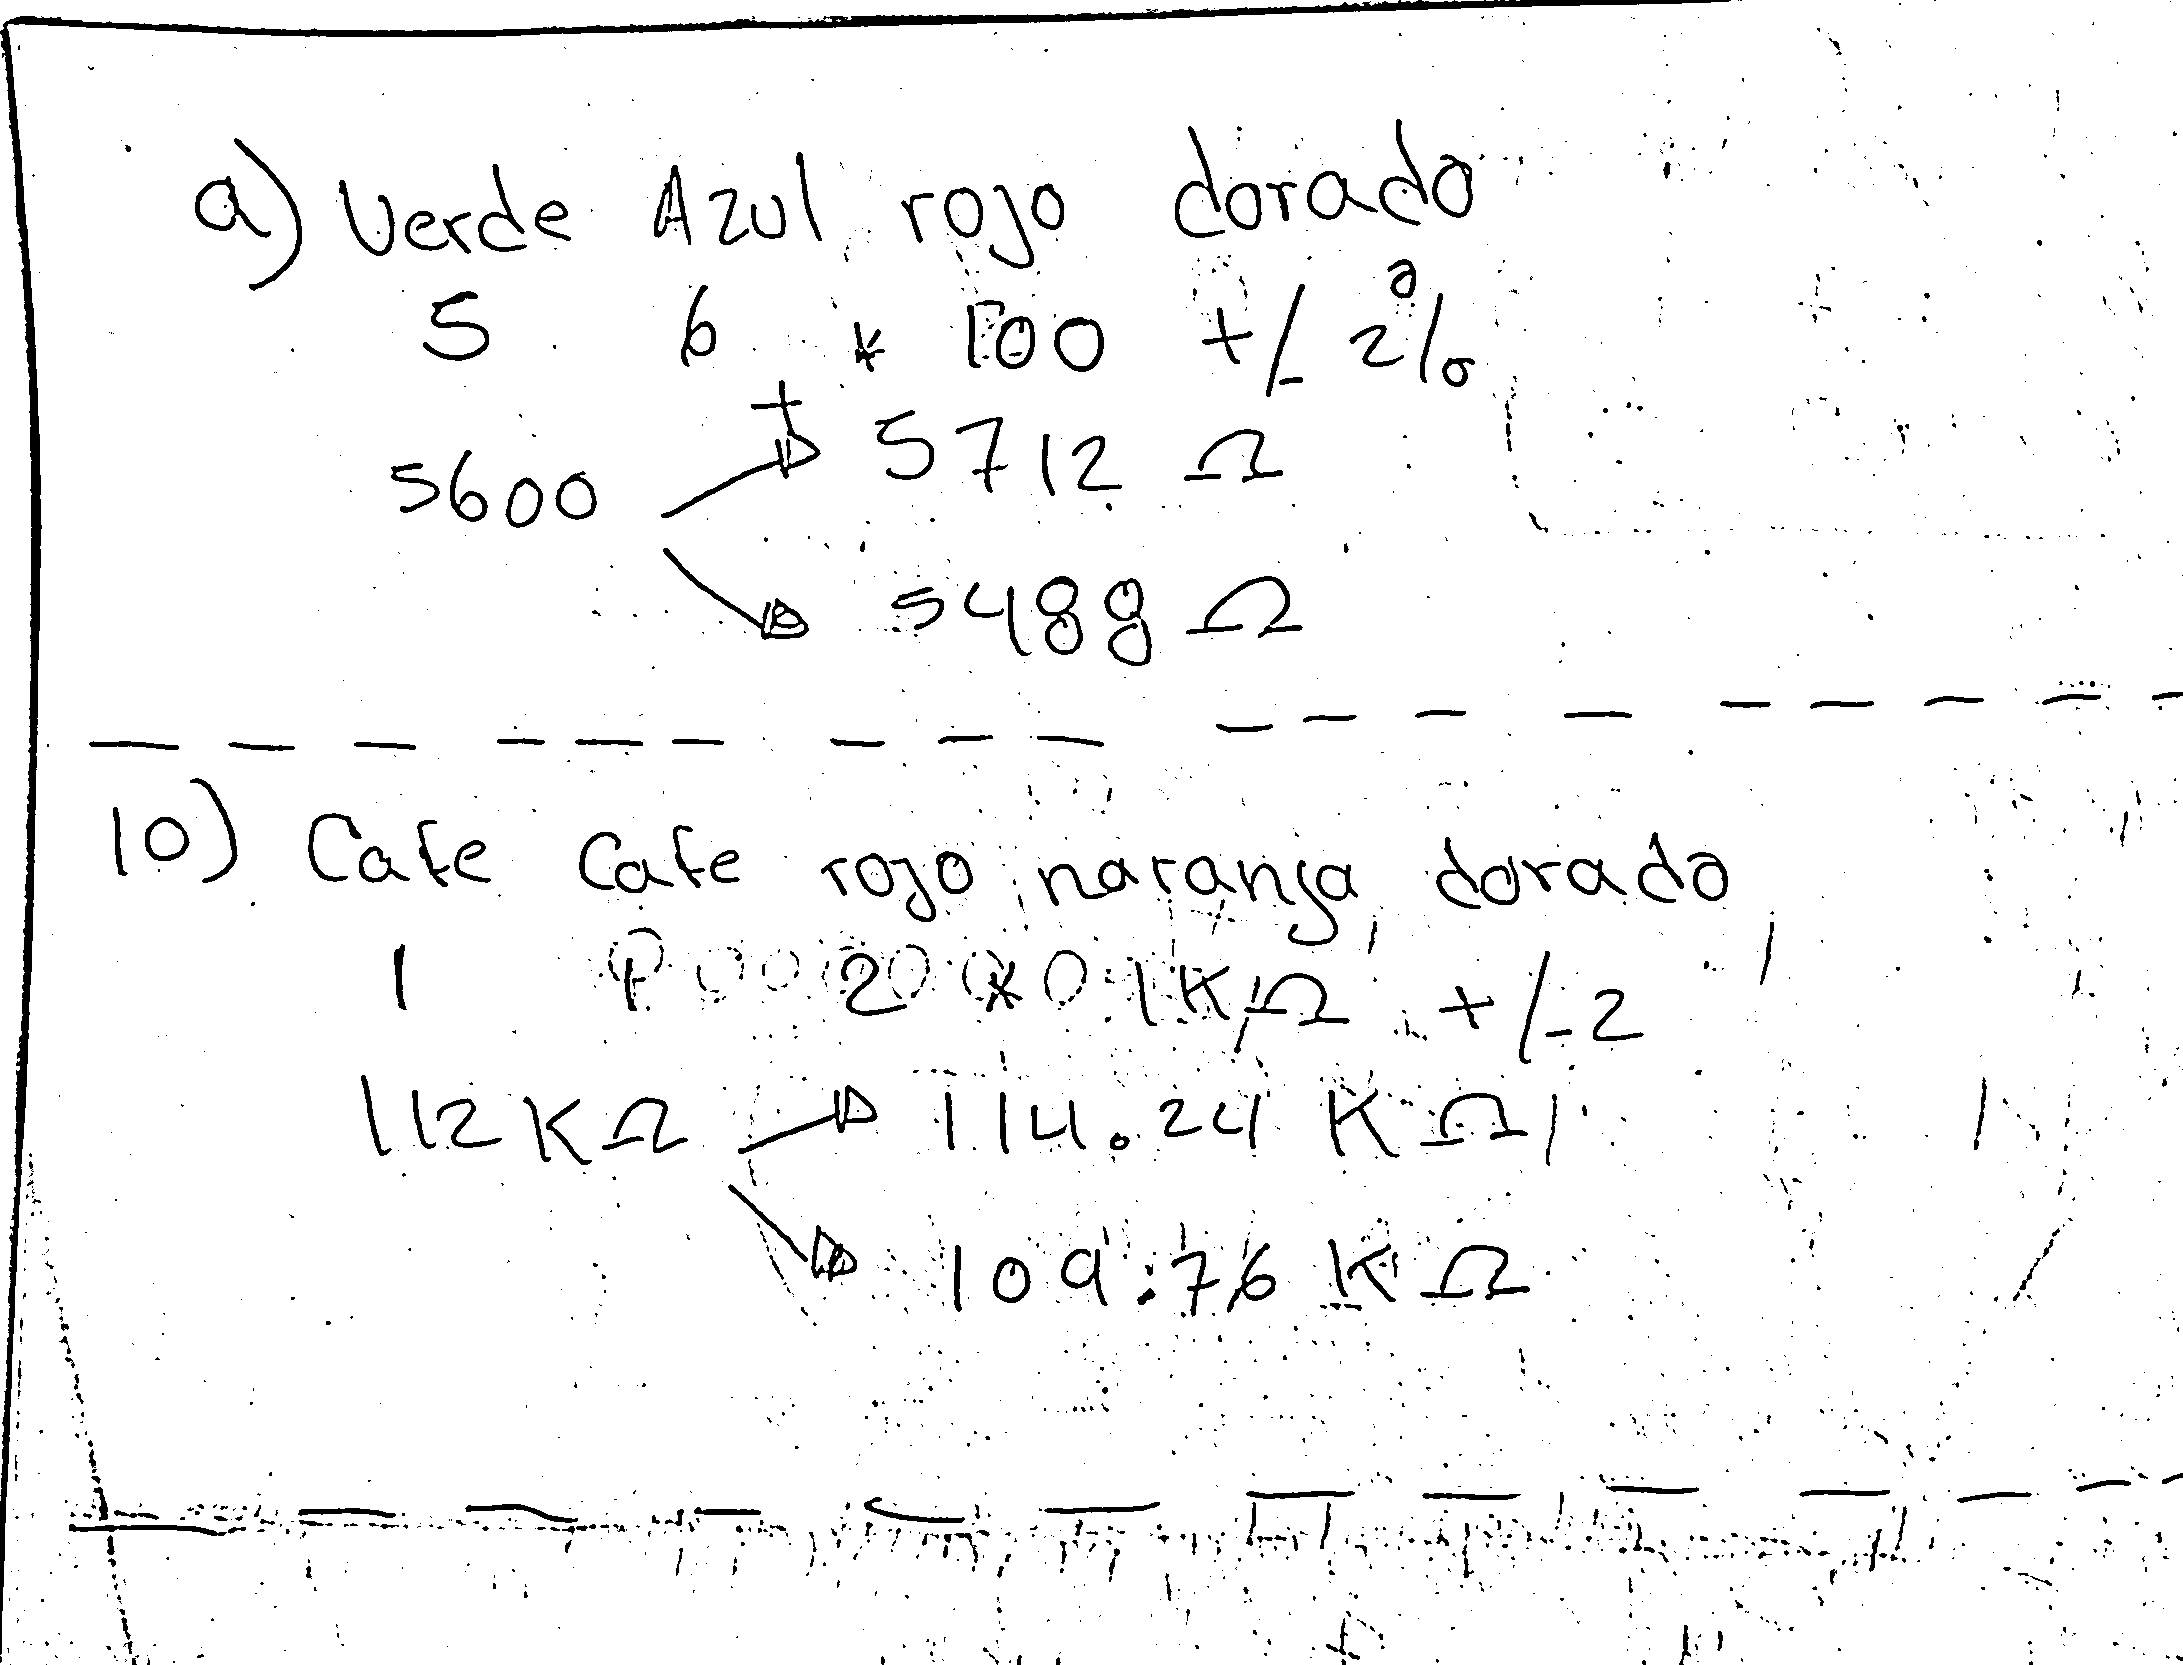 9) Verde Azul rojo dorado
5 6 * 100 +/- 2%
5600 + 5712 Ω
5488 Ω
10) Cafe Cafe rojo naranja dorado
1 1 2 * 1KΩ +/-2
112KΩ 114.24 KΩ
109.76 KΩ